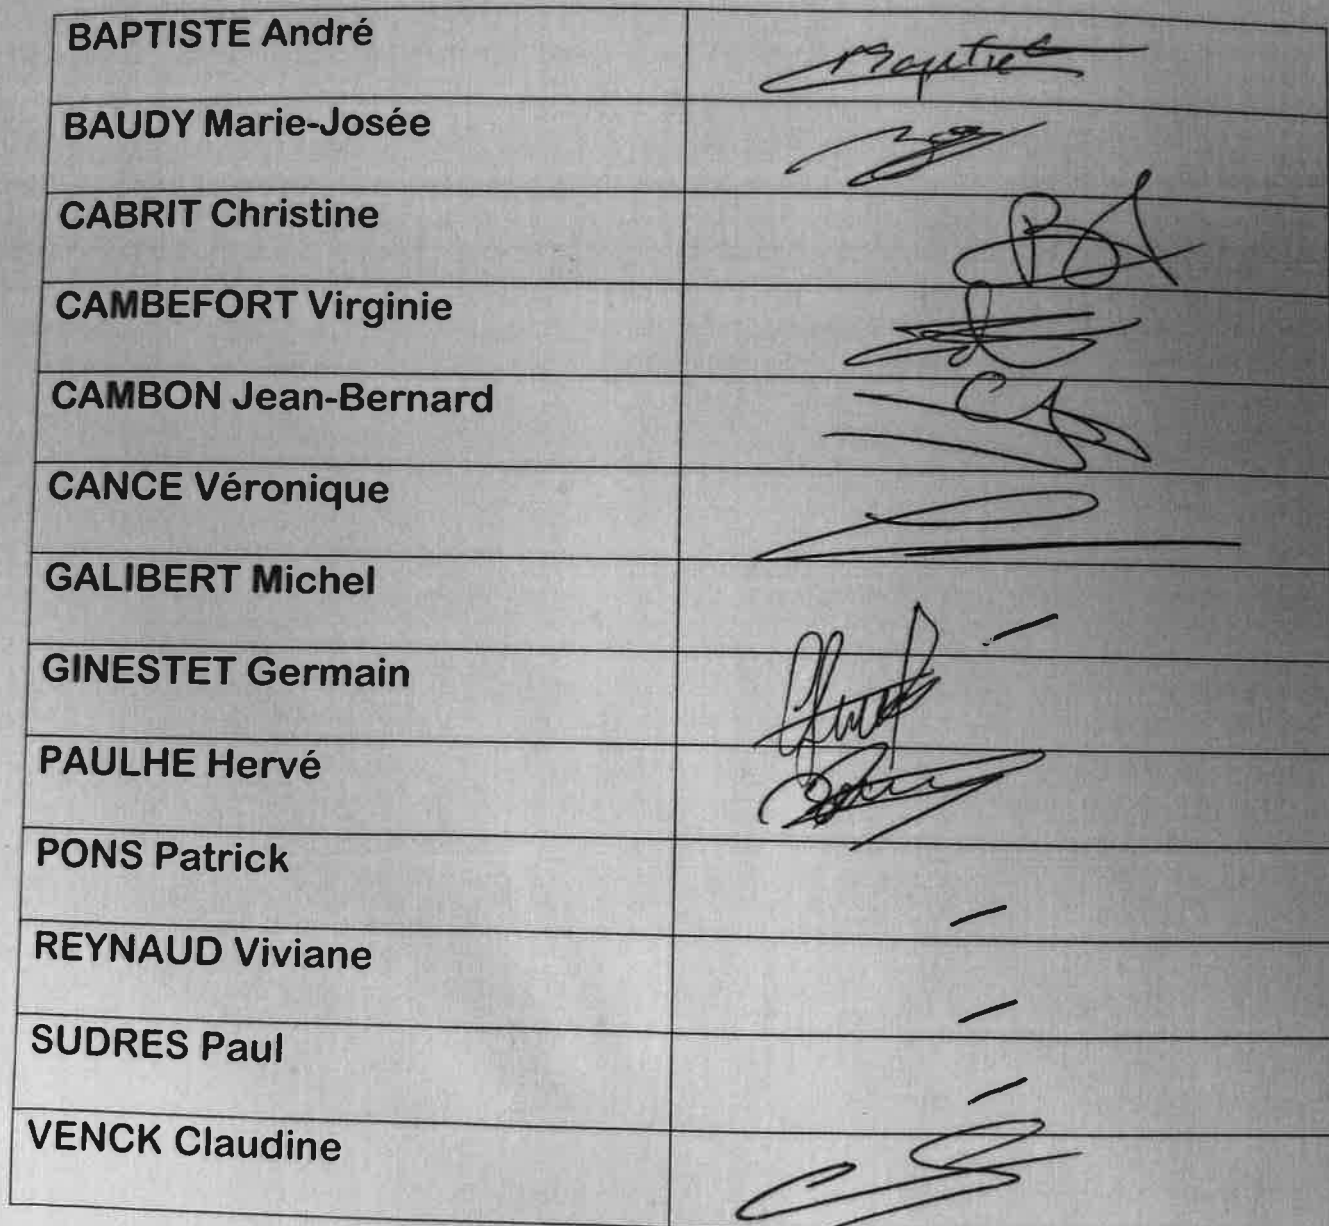 BAPTISTE André
BAUDY Marie-Josée
CABRIT Christine
CAMBEFORT Virginie
CAMBON Jean-Bernard
CANCE Véronique
GALIBERT Michel
GINESTET Germain
PAULHE Hervé
PONS Patrick
REYNAUD Viviane
SUDRES Paul
VENCK Claudine